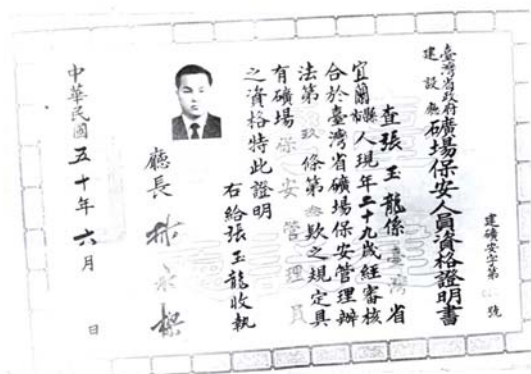 臺灣省政府建設廳礦場保安人員資格證明書
建礦安字第 號
查張玉龍係臺灣省
宜蘭縣市人現年二十九歲經審核
合於臺灣省礦場保安管理辦
法第玖條第叁款之規定具
有礦場保安管理員
之資格特此證明
右給張玉龍收執
廳長 林永樑
中華民國五十年六月 日